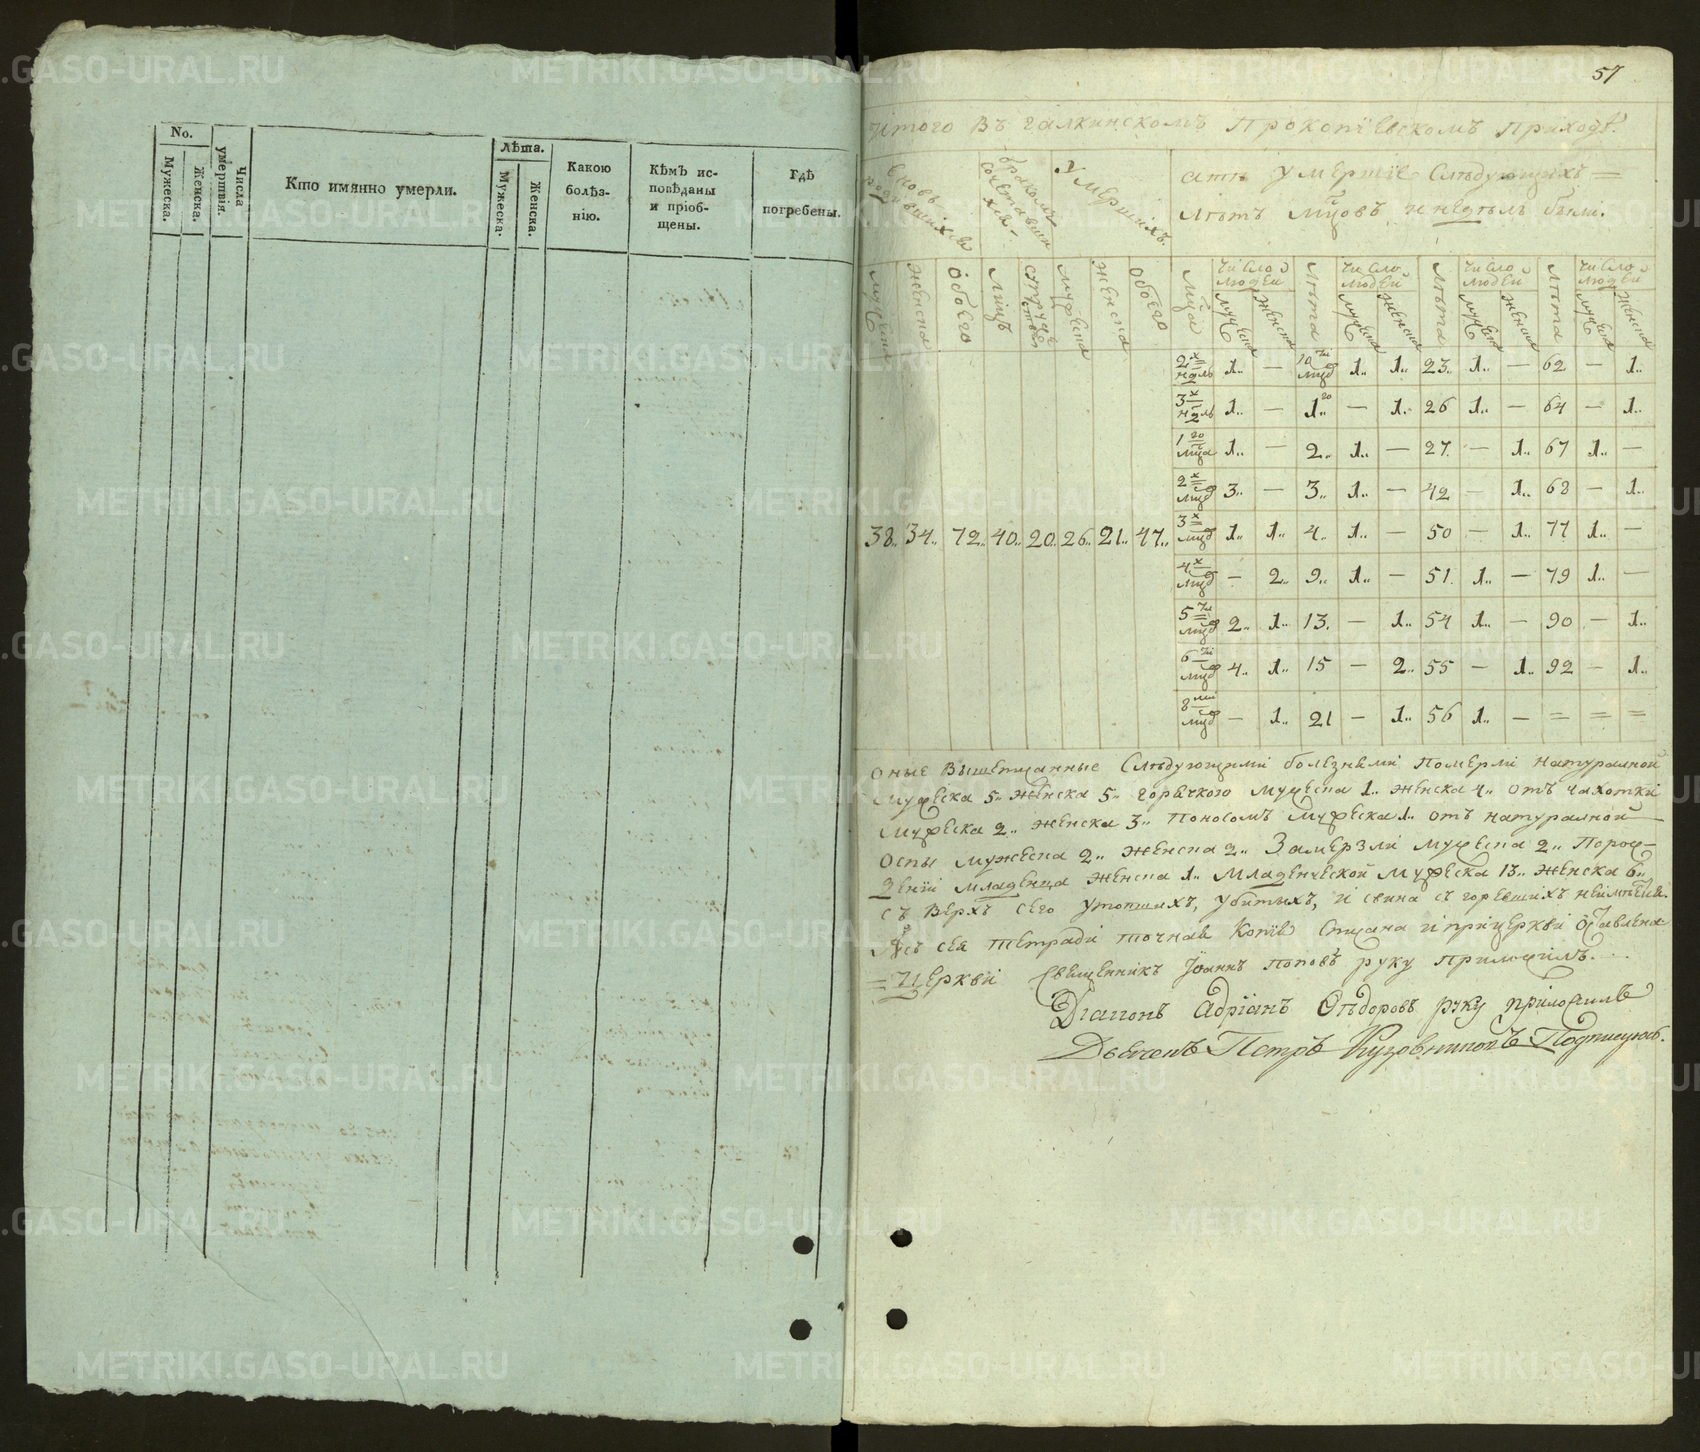 No.
Мужеска.
Женска.
Числа умертвія.
Кто имянно умерли.
Лѣта.
Мужеска.
Женска.
Какою болѣз-
нію.
Кѣмъ ис-
повѣданы
и пріоб-
щены.
Гдѣ
погребены.
57
Итого Въ галкинскомъ Прокопіевскомъ приходѣ.
вновь родившихся
бракомъ сочетавшихся
Умершихъ.
Умершіе Слѣдующихъ =
лѣтъ мцовъ и недѣль были.
мужеска женска обоего лицъ супружествъ мужеска женска обоего
Мцы число людей Лѣта число людей Лѣта число людей Лѣта число людей
мужеска женска мужеска женска мужеска женска мужеска женска
38.. 34.. 72.. 40.. 20.. 26.. 21.. 47..
2х недль 1.. — 10ти мцд 1.. 1.. 23.. 1.. — 62 — 1..
3х недль 1.. — 1го — 1.. 26 1.. — 64 — 1..
1го мца 1.. — 2.. 1.. — 27. — 1.. 67 1.. —
2х мцд 3.. — 3.. 1.. — 42 — 1.. 68 — 1..
3х мцд 1.. 1.. 4.. 1.. — 50 — 1.. 77 1.. —
4х мцд — 2.. 9.. 1.. — 51. 1.. — 79 1.. —
5ти мцд 2.. 1.. 13. — 1.. 54 1.. — 90 — 1..
6ти мцд 4.. 1.. 15 — 2.. 55 — 1.. 92 — 1..
8ми мцд — 1.. 21 — 1.. 56 1.. — = = =
оные вышеписанные Слѣдующими болезнеми Померли натуралной
мужеска 5.. женска 5.. горячкою мужеска 1.. женска 4.. отъ чахотки
мужеска 2.. женска 3.. поносомъ мужеска 1.. отъ натуралной
оспы мужеска 2.. женска 2.. Замерзли мужеска 2..
младенца женска 1.. младенческой мужеска 13.. женска 6..
съ верхъ сего утопшихъ, убитыхъ, и сгоревшихъ неимеется.
сея тетради точная копія списана и прицеркви оставлена
= Церкви Священникъ Іоаннъ Поповъ руку приложилъ.
Діаконъ Адріанъ Ѳедоровъ руку приложилъ
Дьячекъ Петръ Подписуюсь.
METRIKI.GASO-URAL.RU